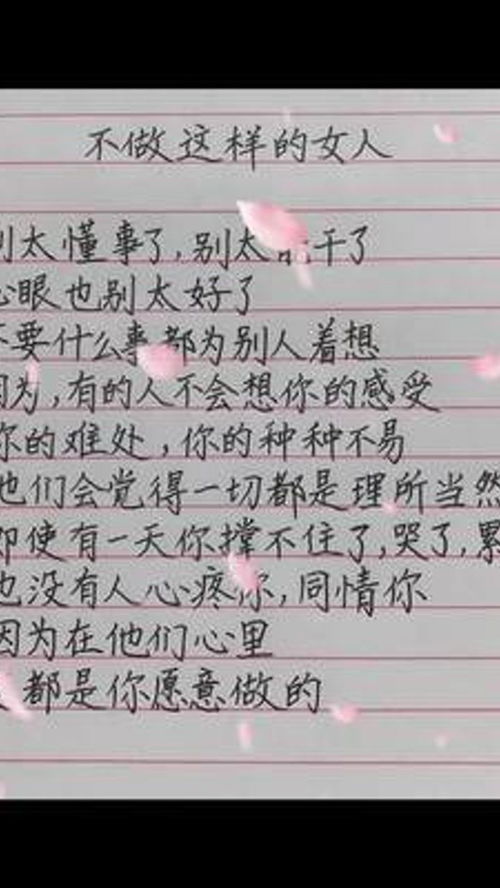 不做这样的女人
别太懂事了,别太能干了
心眼也别太好了
不要什么事都为别人着想
因为,有的人不会想你的感受
你的难处,你的种种不易
他们会觉得一切都是理所当然
即使有一天你撑不住了,哭了,累
也没有人心疼你,同情你
因为在他们心里
都是你愿意做的